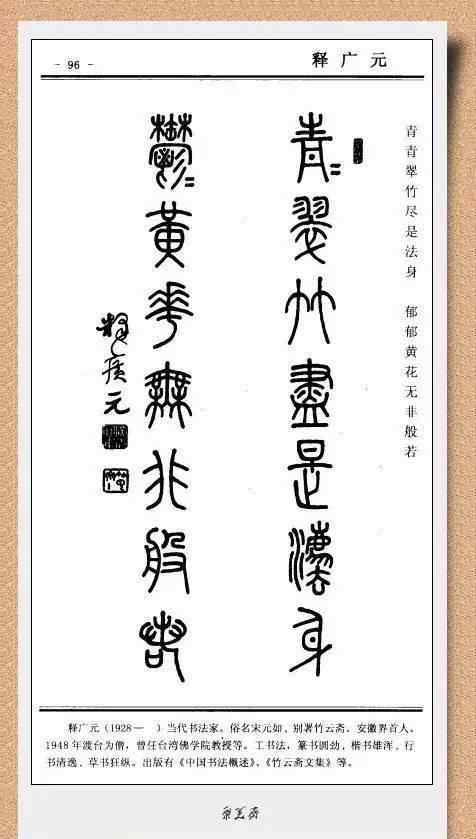 - 96 -
释广元
青青翠竹尽是法身 郁郁黄花无非般若
青〻翠竹盡是灋身
鬱〻黃花無非般若
释广元
释广元(1928— )当代书法家。俗名宋元如，别署竹云斋。安徽界首人。
1948年渡台为僧，曾任台湾佛学院教授等。工书法，篆书圆劲，楷书雄浑，行
书清逸，草书狂纵。出版有《中国书法概述》、《竹云斋文集》等。